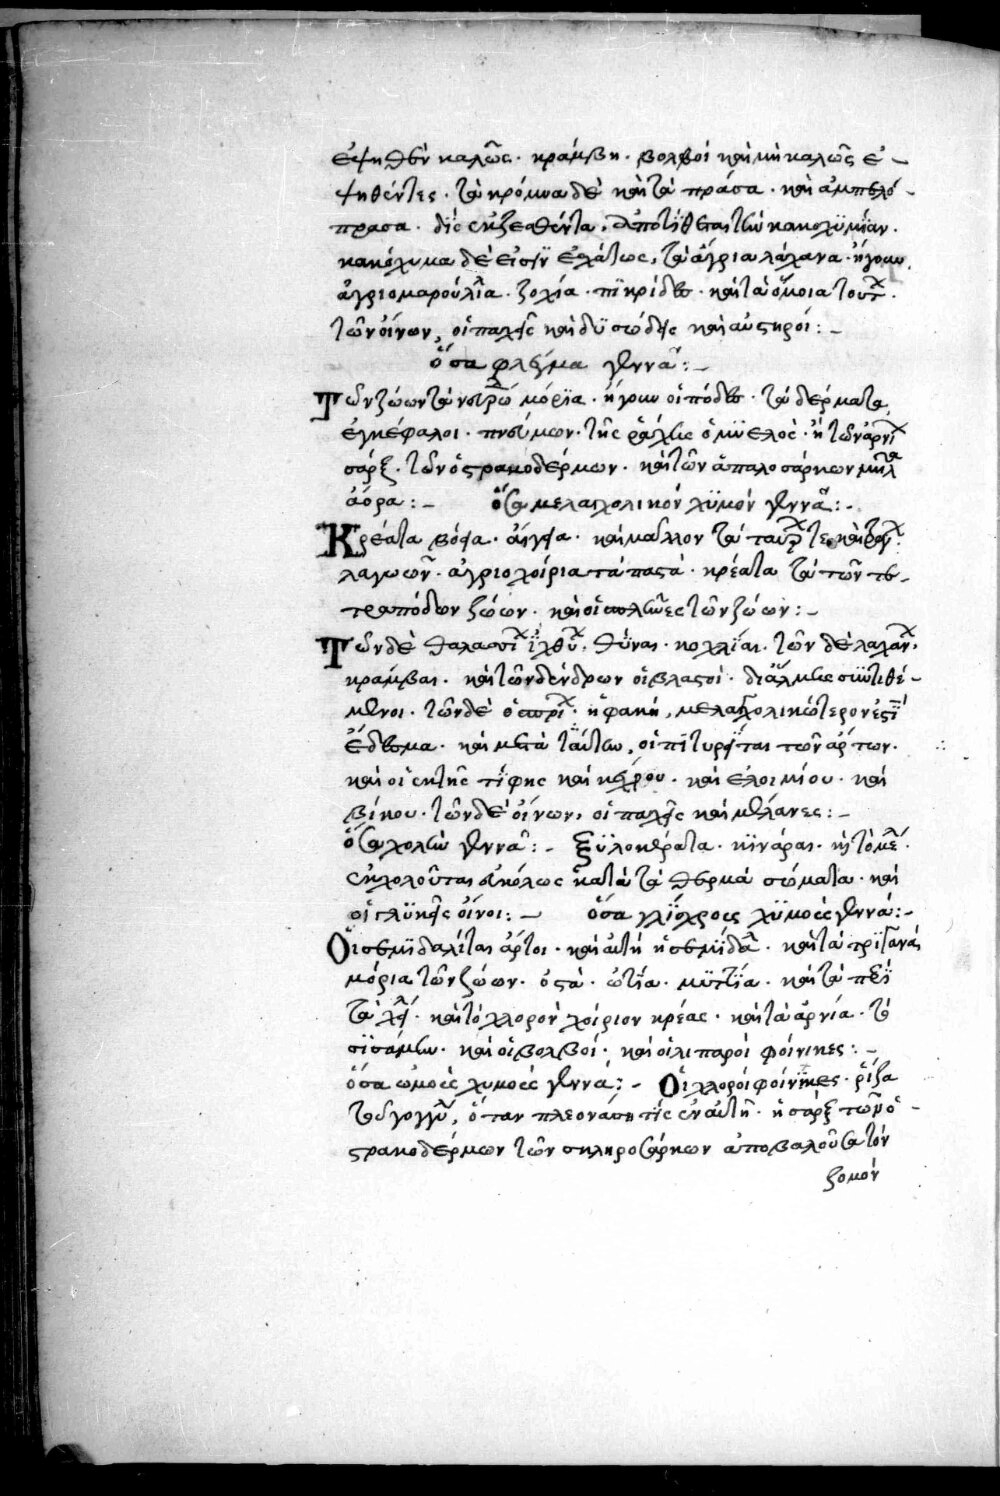 ἑψηθὲν καλῶς· κράμβη· βολβοὶ καὶ μὴ καλῶς ἐ-
ψηθέντες· τὰ κρόμυα δὲ καὶ τὰ πράσα· καὶ ἀμπελό-
πρασα· δὶς ἐκζεσθέντα, ἀποτίθεται τὴν κακοχϋμίαν·
κακόχυμα δὲ εἰσὶν ἐσχάτως, τὰ ἄγρια λάχανα· ἤγουν,
ἀγριομαρούλια· ζοχία· πικρίδες· καὶ τὰ ὅμοια τούτ·
τῶν οἴνων, οἱ παχεῖς καὶ δυσώδεις καὶ αὐστηροί:-
ὅσα φλέγμα γεννᾶ:-
Τῶν ζώων τὰ νευρώ μόρια· ἤγουν οἱ πόδες· τὰ δέρματα
ἐγκέφαλοι· πνεύμων· τῆς ῥάχεως ὁ μϋελός· ἡ τῶν ἀρνί
σάρξ· τῶν ὀστρακοδέρμων· καὶ τῶν ἁπαλοσάρκων μῆλα
ἄορα:- ὅσα μελαγχολικὸν χϋμὸν γεννᾶ:-
Κρέατα βόεια· αἴγεια· καὶ μᾶλλον τὰ ταύρ τε καὶ τράγ·
λαγωῶν· ἀγριοχοίρια τὰ παστὰ· κρέατα τὰ τῶν τε-
τραπόδων ζώων· καὶ οἱ σπλῆνες τῶν ζώων:-
Τῶν δὲ θαλασσί ἰχθύ, θύναι· κοχλίαι· τῶν δὲ λαχάν,
κράμβαι· καὶ τῶν δένδρων οἱ βλαστοί· δι' ἅλμης συντιθέ-
μενοι· τῶν δὲ ὀσπρί· ἡ φακή, μελαγχολικώτερον ἐστὶ
ἔδεσμα· καὶ μετὰ ταύτην, οἱ πιτυρῖται τῶν ἄρτων·
καὶ οἱ ἐκ τῆς τίφης καὶ κέγχρου· καὶ ἐλοιμίου· καὶ
βίκου· τῶν δὲ οἴνων, οἱ παχεῖς καὶ μέλανες:-
ὅσα χολὴν γεννᾶ:- ξϋλοκέρατα· κϊνάραι· καὶ τὸ μέλι·
ἐκχολοῦται εὐκόλως κατὰ τὰ θερμὰ σώματα· καὶ
οἱ γλυκεῖς οἶνοι:- ὅσα γλίσχρους χϋμοὺς γεννᾶ:-
Οἱ σεμιδαλῖται ἄρτοι· καὶ αὐτὴ ἡ σεμίδαλ· καὶ τὰ τραγανὰ
μόρια τῶν ζώων· ὀστὰ· ὠτία· μυτία· καὶ τὰ περὶ
τὰ χείλ· καὶ τὸ χλορὸν χοίριον κρέας· καὶ τὰ ἀρνία· τὸ
σϊσάμην· καὶ οἱ βολβοί· καὶ οἱ λιπαροὶ φοίνικες:-
ὅσα ὠμοὺς χυμοὺς γεννᾶ:- Οἱ χλοροὶ φοίνϊκες· ῥίζα
τοῦ γογγύ, ὅταν πλεονάσῃ τίς ἐν αὐτῇ· ἡ σάρξ τῶν ὀ-
στρακοδέρμων τῶν σκληροσάρκων ἀποβαλοῦσα τὸν
ζομὸν